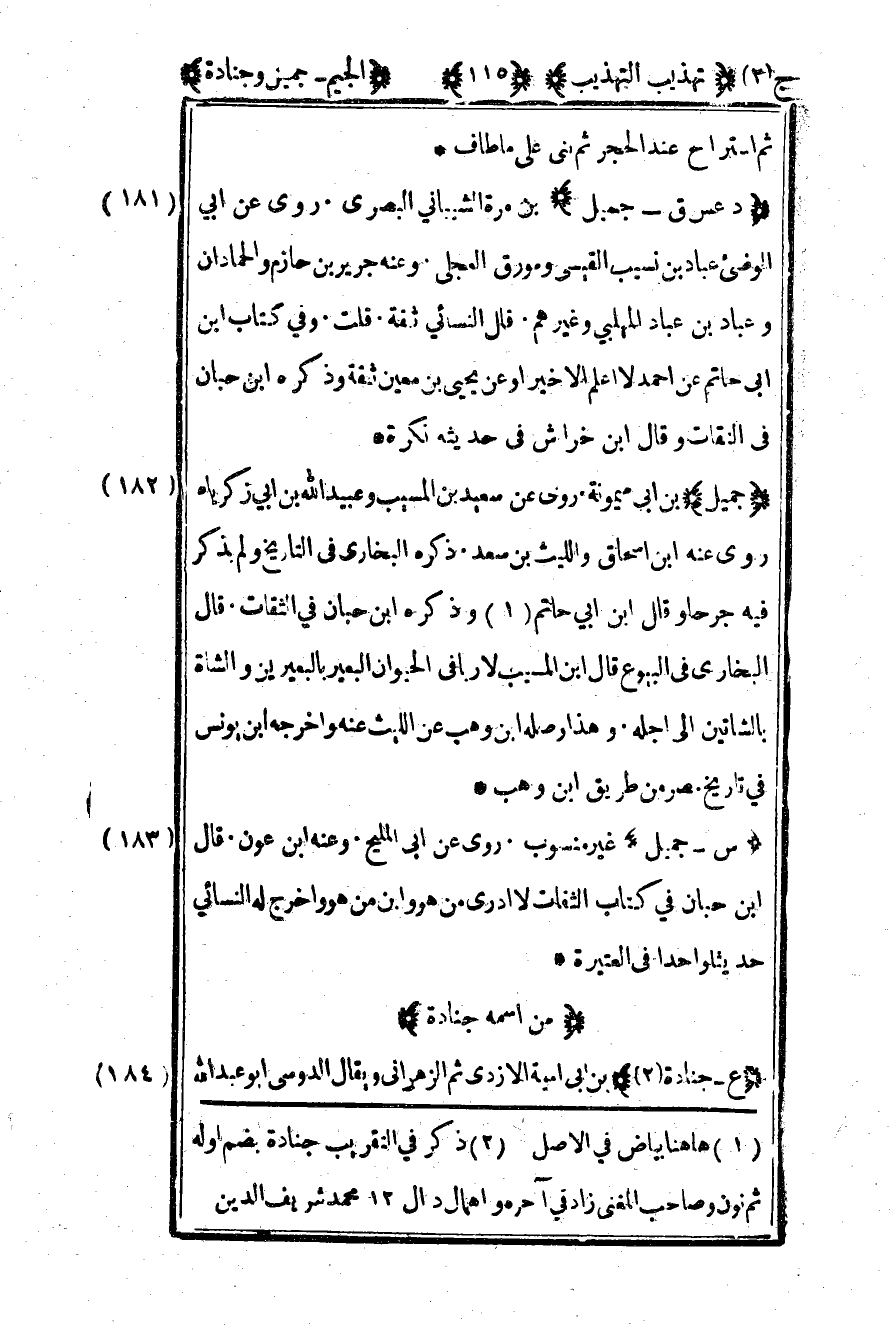 ج(٣) ﴿ تهذيب التهذيب ﴾ ﴿١١٥﴾ ﴿الجيم ـ جميز وجنادة﴾
ثم استراح عند الحجر ثم بنى على ماطاف *
﴿ د عس ق ــ جميل ﴾ بن مرة الشيباني البصرى ٠ روى عن ابي (١٨١)
الوضئ عباد بن نسيب القيسى ومورق العجلى ٠ وعنه جرير بن حازم والحمادان
و عباد بن عباد المهلبي وغيرهم ٠ قال النسائي ثقة ٠ قلت ٠ وفي كتاب ابن
ابى حاتم عن احمد لا اعلم الاخيرا وعن يحيى بن معين ثقة وذكره ابن حبان
فى الثقات و قال ابن خراش فى حديثه نكرة *
﴿ جميل ﴾ بن ابى ميمونة ٠ روى عن سعيد بن المسيب وعبيدالله بن ابي زكرياء (١٨٢)
روى عنه ابن اسحاق والليث بن سعد ٠ ذكره البخارى فى التاريخ ولم يذكر
فيه جرحاو قال ابن ابي حاتم (١) و ذكره ابن حبان في الثقات ٠ قال
البخارى فى البيوع قال ابن المسيب لا ربا فى الحيوان البعير بالبعيرين و الشاة
بالشاتين الى اجله ٠ و هذا وصله ابن وهب عن الليث عنه واخرجه ابن يونس
في تاريخ مصر من طريق ابن وهب *
﴿ س ـ جميل ﴾ غير منسوب ٠ روى عن ابى المليح ٠ وعنه ابن عون ٠ قال (١٨٣)
ابن حبان في كتاب الثقات لا ادرى من هو وابن من هو واخرج له النسائي
حديثا واحدا فى العتيرة *
﴿ من اسمه جنادة ﴾
﴿ ع ـ جنادة (٢) ﴾ بن ابى امية الازدى ثم الزهرانى ويقال الدوسى ابو عبدالله (١٨٤)
(١) هاهنا بياض في الاصل (٢) ذكر في التقريب جنادة بضم اوله
ثم نون وصاحب المغنى زاد في آخره و اهمال دال ١٢ محمد شريف الدين